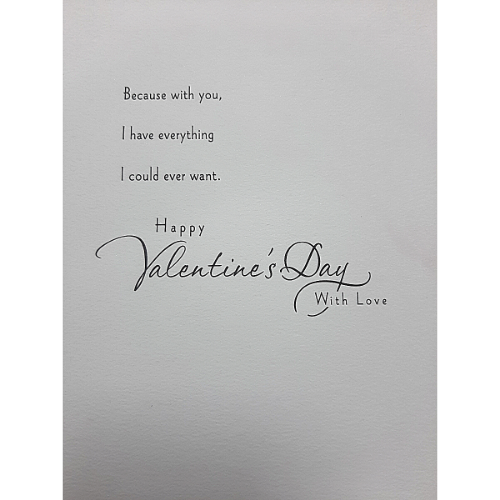 Because with you,
I have everything
I could ever want.
Happy
Valentine's Day
With Love